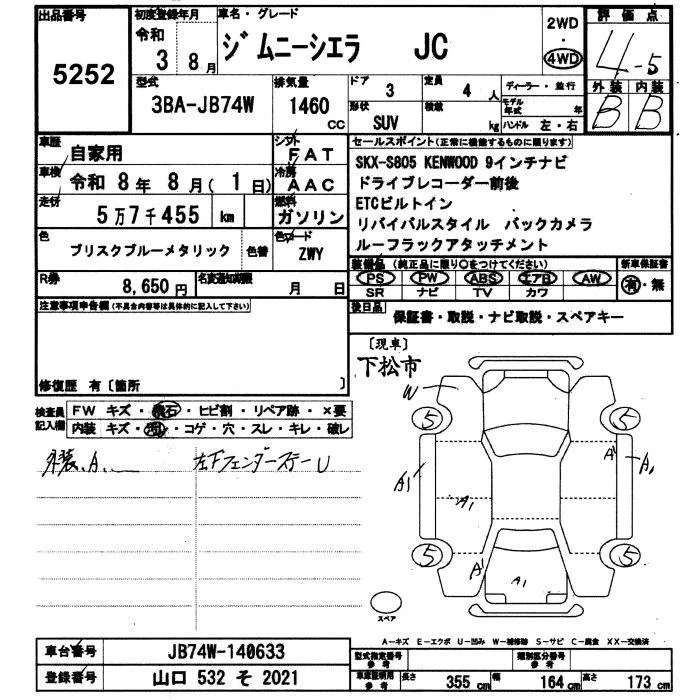 出品番号
5252
初度登録年月
令和 3 8月
車名・グレード
ジムニーシエラ JC
2WD
・
4WD
評価点
4-5
外装 内装
B B
型式
3BA-JB74W
排気量
1460 CC
ドア 3
定員 4 人
ディーラー・並行
形状 SUV
積載 kg
モデル年式 年
ハンドル 左・右
車歴 自家用
シフト FAT
車検 令和 8年 8月( 1日)
冷房 AAC
走行 5万7千455 km
燃料 ガソリン
色 ブリスクブルーメタリック 色替
色コード ZWY
R券 8,650円
名変通知期限 月 日
セールスポイント(正常に機能するものに限ります)
SKX-S805 KENWOOD 9インチナビ
ドライブレコーダー前後
ETCビルトイン
リバイバルスタイル バックカメラ
ルーフラックアタッチメント
装備品 (純正品に限り○をつけてください) 新車保証書
PS PW ABS エアB AW 有・無
SR ナビ TV カワ
後日品 保証書・取説・ナビ取説・スペアキー
注意事項申告欄(不具合内容等は具体的に記入して下さい)
修復歴 有〔箇所 〕
検査員記入欄
FW キズ・飛石・ヒビ割・リペア跡・×要
内装 キズ・汚れ・コゲ・穴・スレ・キレ・破レ
外装、A、
左Fフェンダーステー U
〔現車〕
下松市
W
5 5
A1 A1 A1 A1
5 5
A1 A1
スペア
A-キズ E-エクボ U-凹み W-補修跡 S-サビ C-腐食 XX-交換済
車台番号 JB74W-140633
登録番号 山口 532 そ 2021
型式指定番号 参考
類別区分番号 参考
車庫証明用 参考 長さ 355 cm 幅 164 cm 高さ 173 cm